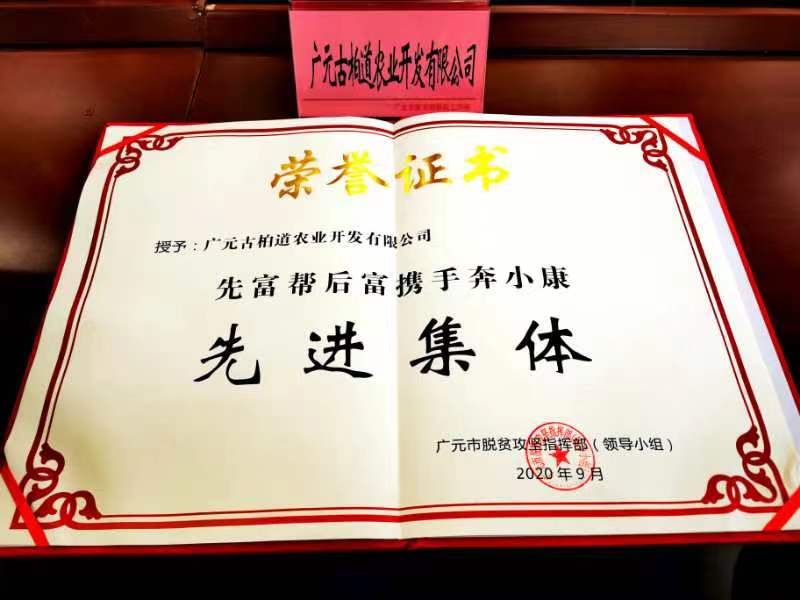 广元古柏道农业开发有限公司
荣誉证书
授予：广元古柏道农业开发有限公司
先富帮后富携手奔小康
先进集体
广元市脱贫攻坚指挥部（领导小组）
2020年9月